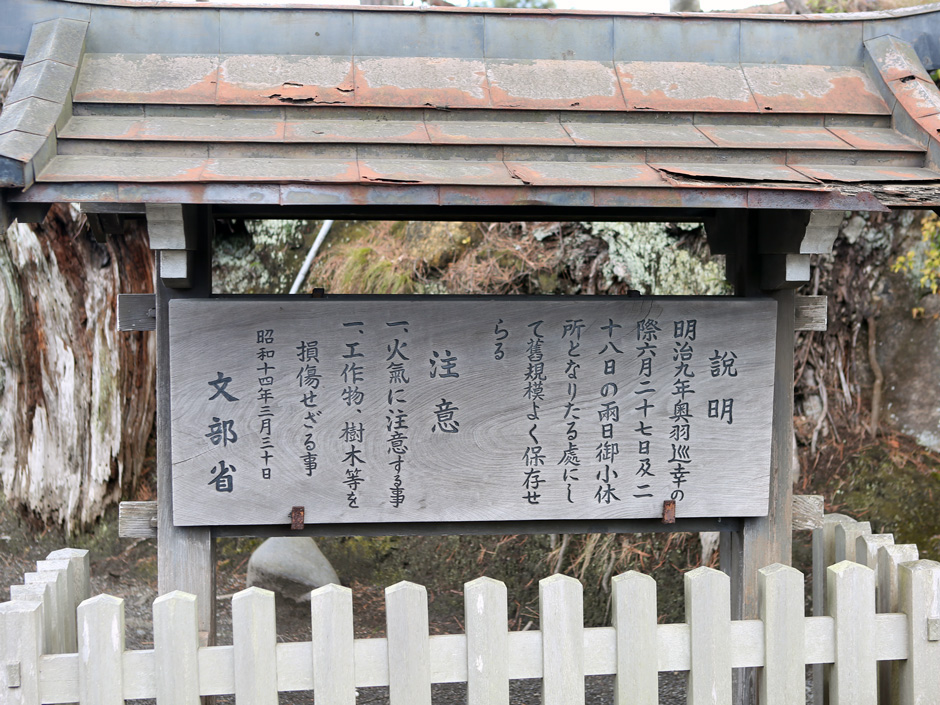 説明
明治九年奥羽巡幸の
際六月二十七日及二
十八日の両日御小休
所となりたる處にし
て舊規模よく保存せ
らる
注意
一、火氣に注意する事
一、工作物、樹木等を
損傷せざる事
昭和十四年三月三十日
文部省